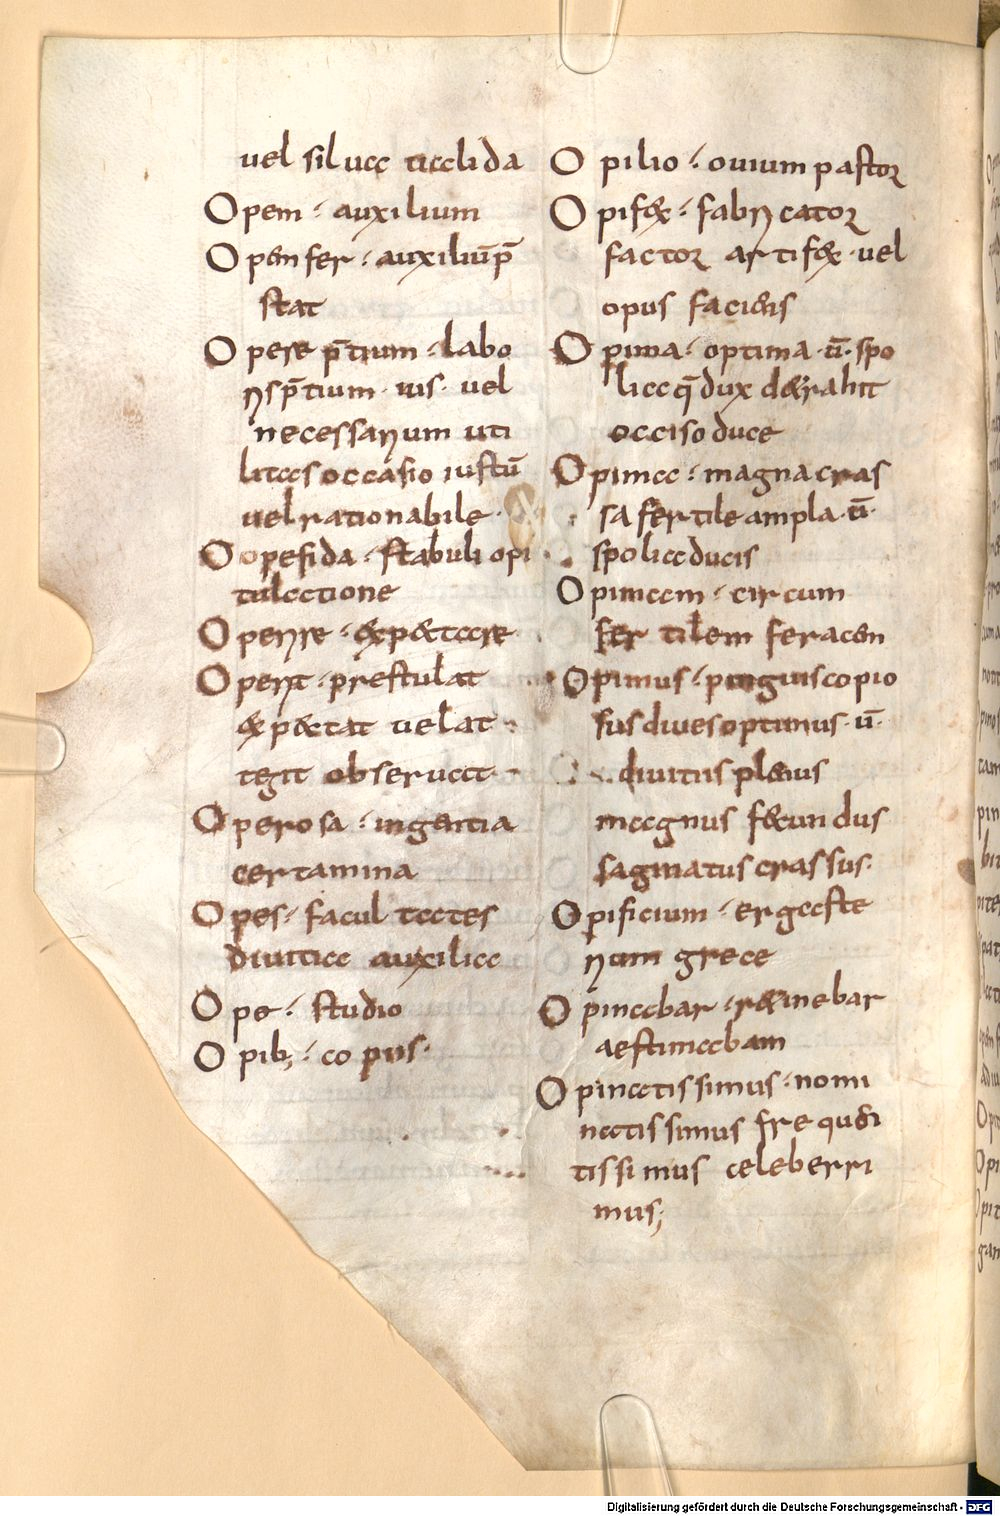 uel silua calida
Opem · auxilium
Openfer · auxiliū p̄
stat
Opere p̄tium · labo
ris p̄tium · uis · uel
necessarium uti
litas occasio iustū
uel rationabile ·
Oopefida · stabuli opi
tulatione
Operire · expectare
Operit · prestulat
expectat uel at
tegit obseruat
Operosa · ingentia
certamina
Opes · facultates
diuitiae auxilia
Ope · studio
Opib; · copus ·
Opilio · ouium pastor
Opifex · fabricator
factor artifex · uel
opus faciens
Opima · optima · ū · spo
lia q̄ dux detrahit
occiso duce
Opima · magna cras
sa fertile ampla · ū ·
spolia ducis
Opimam · circum
fertilem feracem
Opimus · pinguis copio
sus diues optimus · ū ·
diuitiis plenus
magnus fecundus
saginatus crassus ·
Opificium · ergaste
rium grece
Opinabar · retinebar
aestimabam
Opinatissimus · nomi
natissimus frequen
tissimus celeberri
mus;
Digitalisierung gefördert durch die Deutsche Forschungsgemeinschaft - DFG